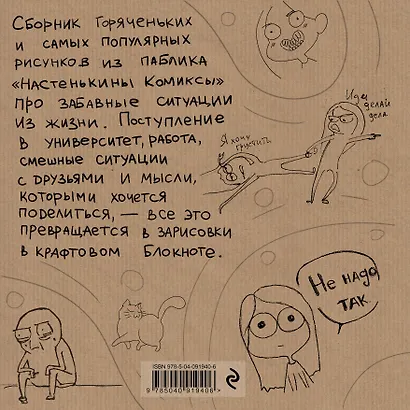 Сборник горяченьких
и самых популярных
рисунков из паблика
«Настенькины Комиксы»
про забавные ситуации
из жизни. Поступление
в университет, работа,
смешные ситуации
с друзьями и мысли,
которыми хочется
поделиться, — все это
превращается в зарисовки
в крафтовом блокноте.
Иди
делай
дела
Я хочу
грустить
Не надо
так
ISBN 978-5-04-091940-6
9 785040 919406 >